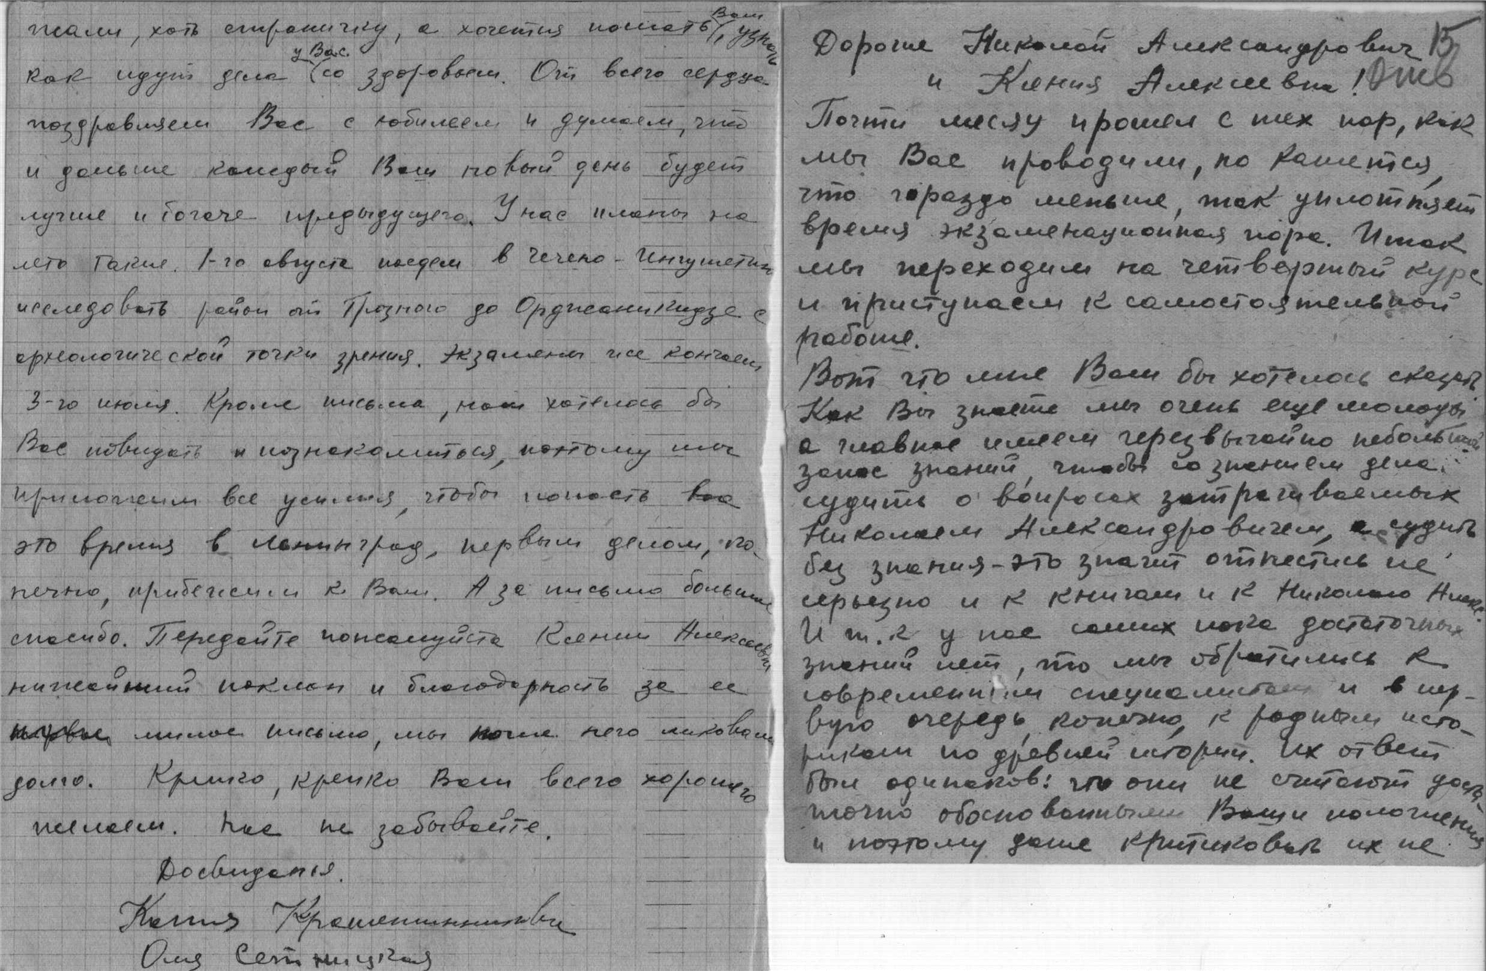 жали, хоть страничку, а хочется послать Вам, узнать
как идут дела у Вас со здоровьем. От всего сердца
поздравляем Вас с юбилеем и думаем, что
и дальше каждый Ваш новый день будет
лучше и богаче предыдущего. У нас планы на
лето такие. 1-го августа поедем в Чечено-Ингушетию
исследовать район от Грозного до Орджоникидзе с
археологической точки зрения. Экзамены же кончаем
3-го июля. Кроме письма, нам хотелось бы
Вас повидать и познакомиться, поэтому мы
приложим все усилия, чтобы попасть
это время в Ленинград, первым делом, ко-
нечно, прибежим к Вам. А за письмо большое
спасибо. Передайте пожалуйста Ксении Алексеевне
нижайший поклон и благодарность за ее
милое письмо, мы после него ликовали
долго. Крепко, крепко Вам всего хорошего
желаем. Нас не забывайте.
Досвиданья.
Капия Крашенинникова
Оля Сетницкая
15
Дорогие Николай Александрович
и Ксения Алексеевна! Отв
Почти месяц прошел с тех пор, как
мы Вас проводили, но кажется,
что гораздо меньше, так уплотняет
время экзаменационная пора. Итак
мы переходим на четвертый курс
и приступаем к самостоятельной
работе.
Вот что мне Вам бы хотелось сказать
Как Вы знаете мы очень еще молоды
а главное имеем черезвычайно небольшой
запас знаний, чтобы со знанием дела
судить о вопросах затрагиваемых
Николаем Александровичем, а судить
без знания - это значит отнестись не
серьезно и к книгам и к Николаю Алекс.
И т.к у нас самих пока достаточных
знаний нет, то мы обратились к
современным специалистам и в пер-
вую очередь, конечно, к родным исто-
рикам по древней истории. Их ответ
был одинаков: что они не считают доста-
точно обоснованными Ваши положения
и поэтому даже критиковать их не